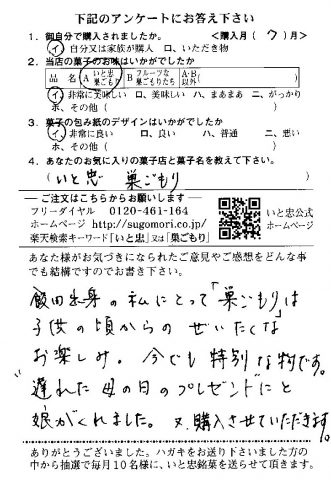 下記のアンケートにお答え下さい
1. 御自分で購入されましたか。 <購入月(7)月>
イ、自分又は家族が購入 ロ、いただき物
2. 当店の菓子のお味はいかがでしたか
品名 A いと忠 巣ごもり B フルーツな 巣ごもりたち A・B 以外
イ、非常に美味しい ロ、美味しい ハ、まあまあ ニ、がっかり
ホ、その他( )
3. 菓子の包み紙のデザインはいかがでしたか
イ、非常に良い ロ、良い ハ、普通 ニ、悪い
ホ、その他( )
4. あなたのお気に入りの菓子店と菓子名を教えて下さい。
(いと忠 巣ごもり )
ご注文はこちらからお願いします
フリーダイヤル 0120-461-164
ホームページ http://sugomori.co.jp/
楽天検索キーワード「いと忠」又は「巣ごもり」
いと忠公式
ホームページ
あなた様がお気づきになられたご意見やご感想をどんな事
でも結構ですのでお書き下さい。
飯田出身の私にとって「巣ごもり」は
子供の頃からのぜいたくな
お楽しみ。今でも特別な物です。
"遅れた母の日のプレゼント"にと
娘がくれました。又、購入させていただきます。
ありがとうございました。ハガキをお送り下さいました方の
中から抽選で毎月10名様に、いと忠銘菓を送らせて頂きます。